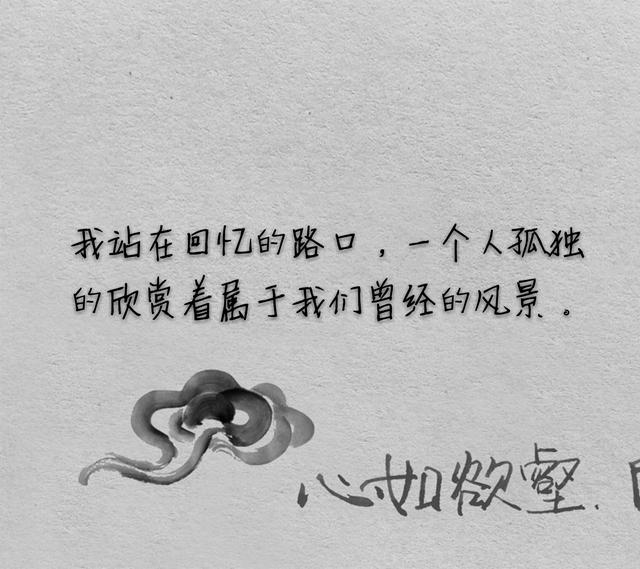 我站在回忆的路口，一个人孤独
的欣赏着属于我们曾经的风景。
心如欲壑.